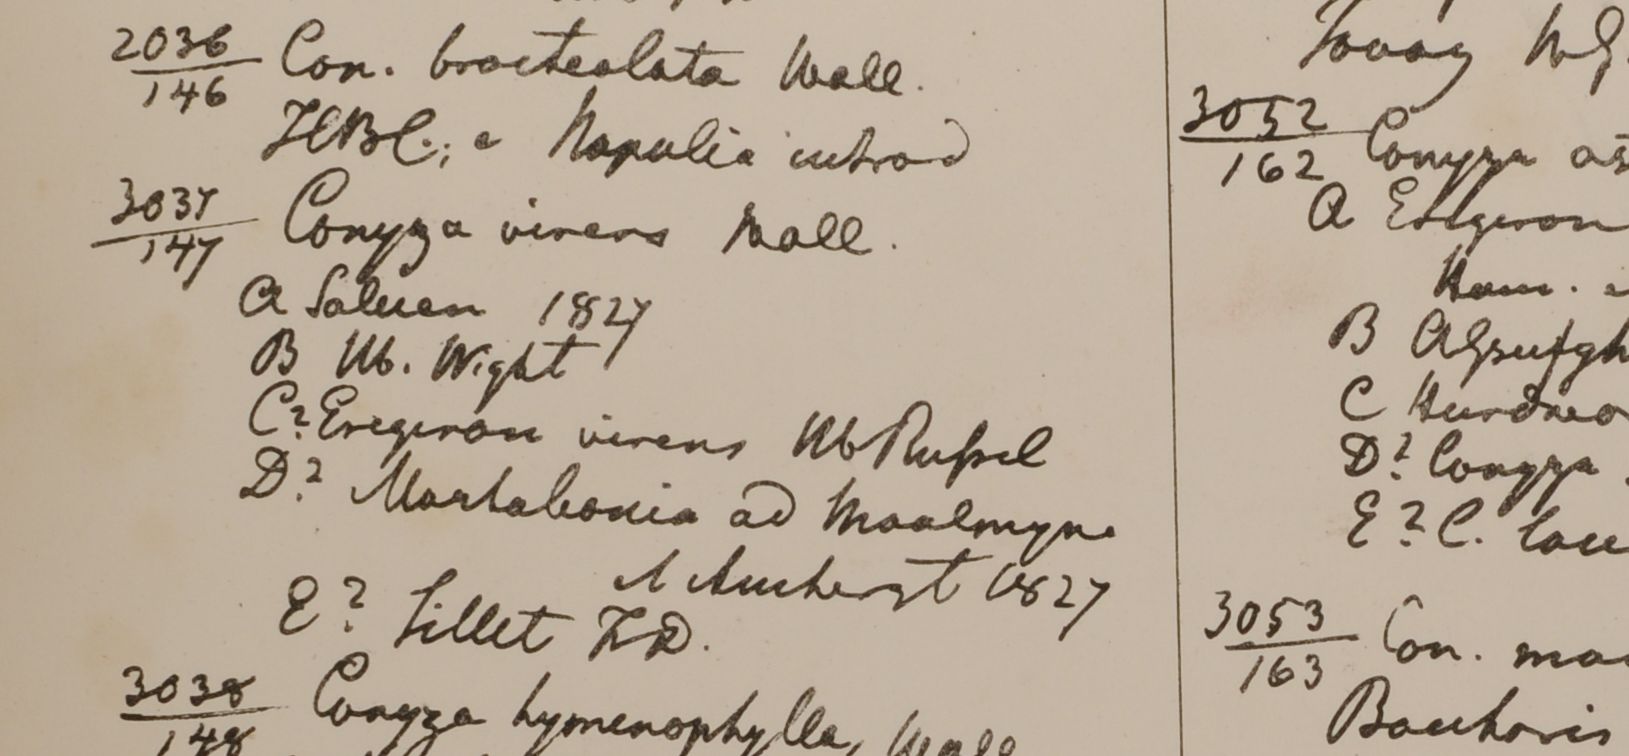 2036
146
Con. bracteolata Wall.
HBC.; e Napalia introd
3037
147
Conyza virens Wall.
A Saluen 1827
B Hb. Wight
C? Erigeron virens Hb Russel
D? Martabania ad Moalmyne
Amherst 1827
E? Sillet F.D.
3038
148
Conyza hymenophylla, Wall
Tovoy W.G.
3052
162
Conyza as
A Erigeron
Ham.
B
C Hurdwa
D? Conyza
E? C. lac
3053
163
Con. ma
Baccharis